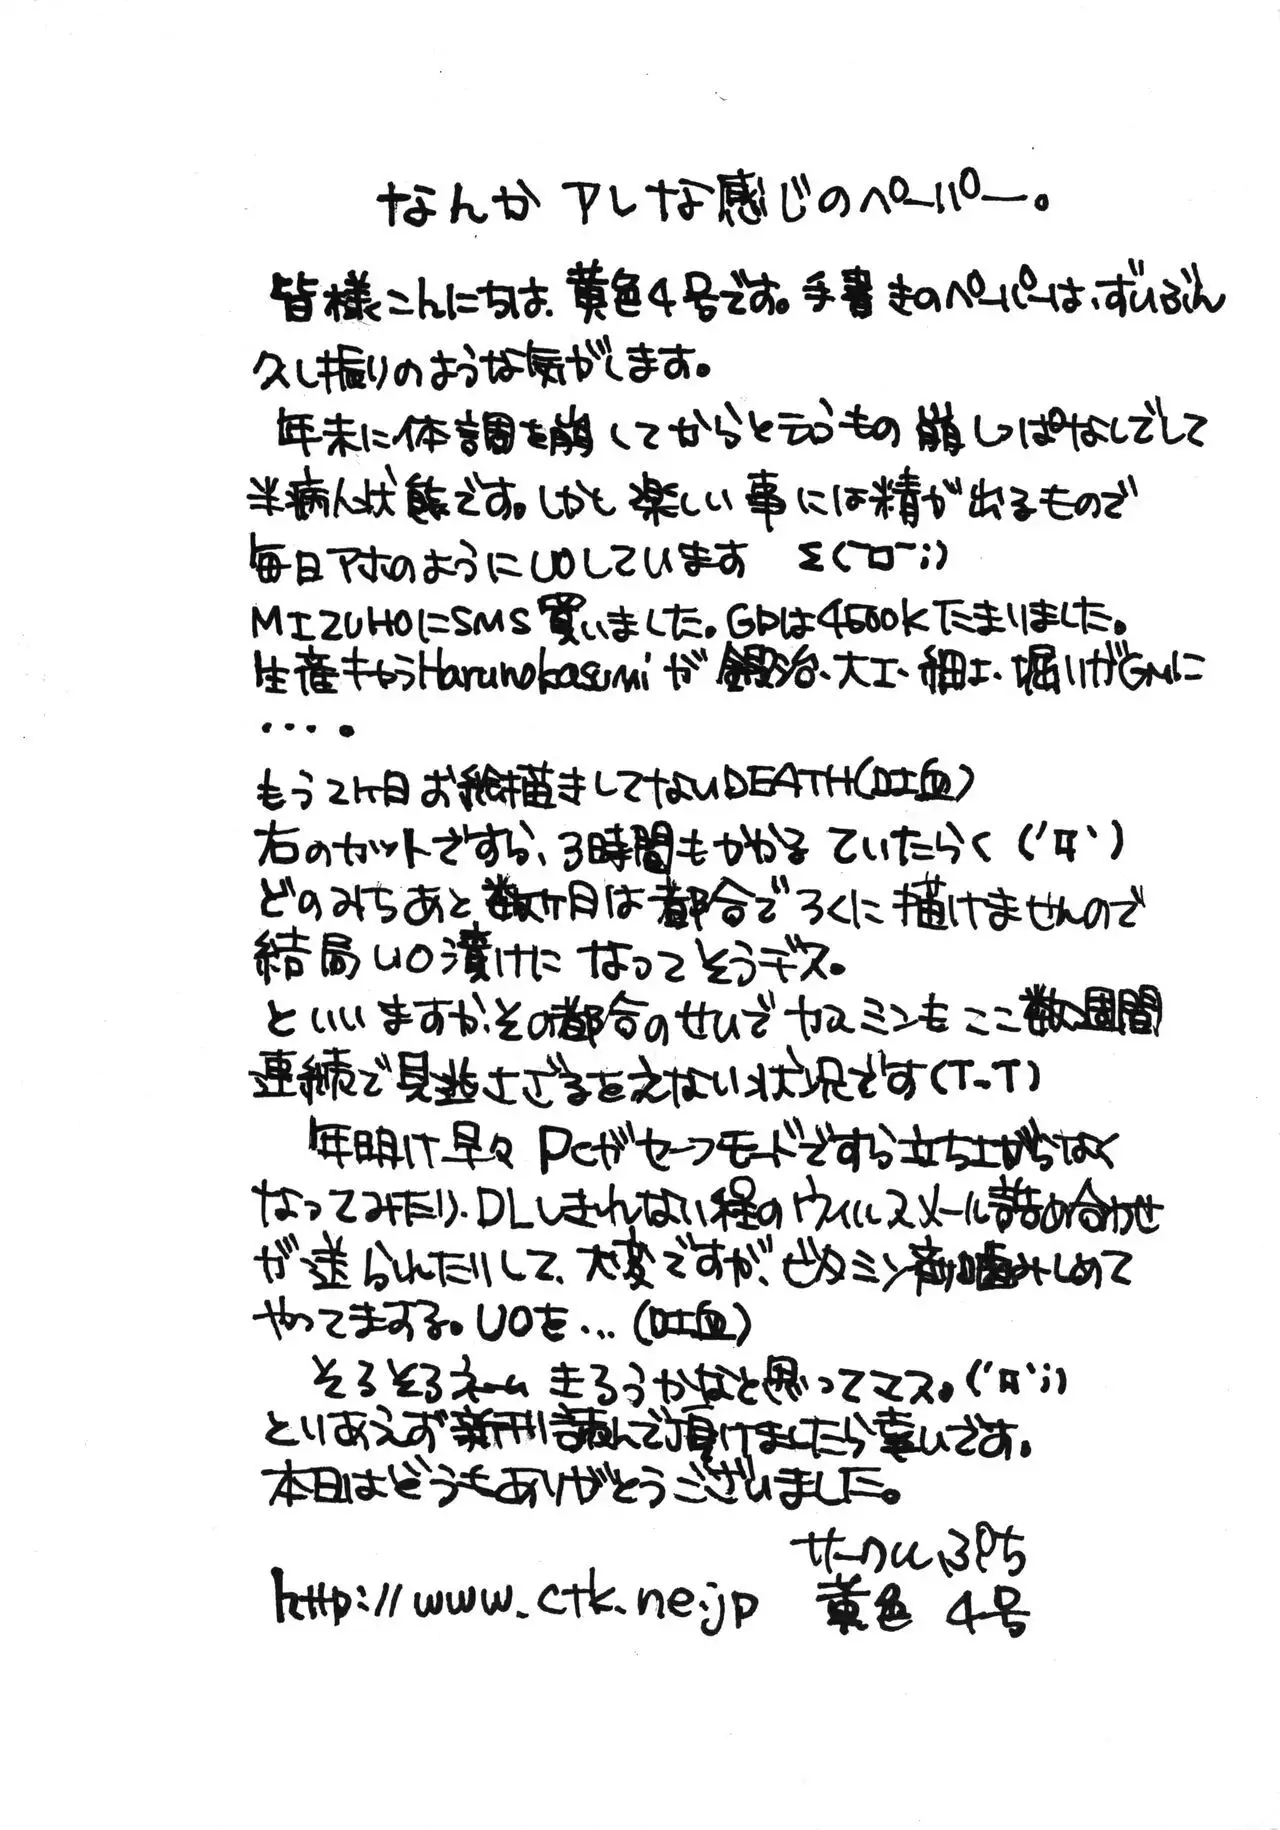 なんか アレな感じのペーパー。
皆様こんにちは、黄色4号です。手書きのペーパーは、ずいぶん
久し振りのような気がします。
年末に体調を崩してからと言うもの 崩しっぱなしでして
半病人状態です。しかと 楽しい事には精が出るもので
毎日アホのようにUOしています Σ( ̄ロ ̄;)
MIZUHOにSMS買いました。GPは4500Kたまりました。
生産キャラHarunokasumiが鍛治、大工、細工、堀りがGMに
・・・。
もう2ヶ月お絵描きしてないDEATH(吐血)
右のカットですら、3時間もかかるていたらく('Д`)
どのみちあと数ヶ月は都合でろくに描けませんので
結局UO漬けになってそうデス。
といいますか、その都合のせいでヤスミンもここ数週間
連続で見逃さざるをえない状況です(T-T)
年明け早々PCがセーフモードですら立ち上がらなく
なってみたり、DLしきれない程のウィルスメール詰め合わせ
が送られたりして、大変ですが、ビタミン剤噛みしめて
やってますする。UOを...(吐血)
そろそろネームきろうかなと思ってマス。('Д`;)
とりあえず新刊読んで頂けましたら幸いです。
本日はどうもありがとうございました。
サークルぷち
http://www.ctk.ne.jp 黄色 4号